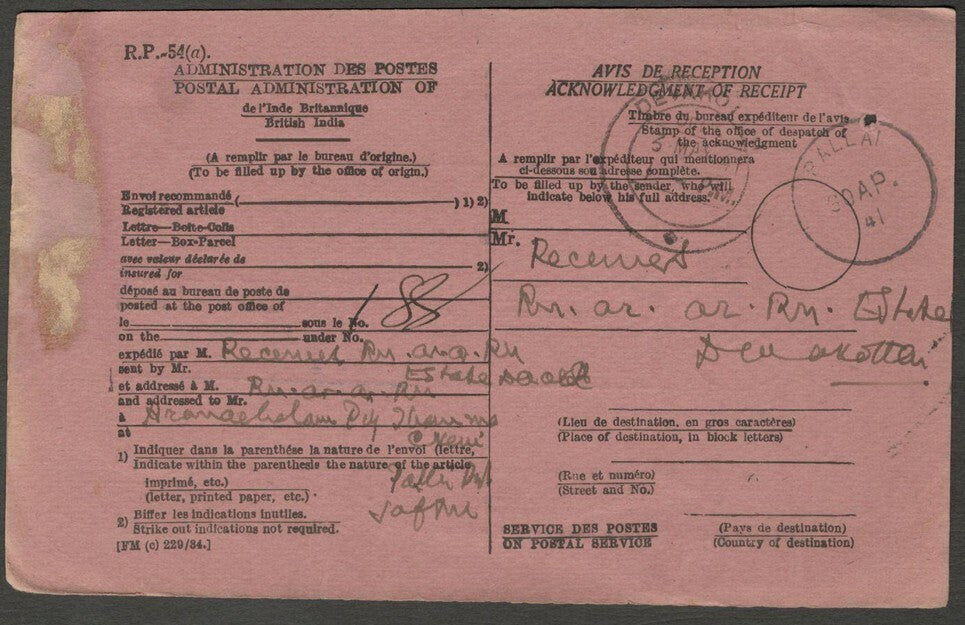 R.P.-54(a).
ADMINISTRATION DES POSTES
POSTAL ADMINISTRATION OF
de l'Inde Britannique
British India
(A remplir par le bureau d'origine.)
(To be filled up by the office of origin.)
Envoi recommandé
Registered article ( ) 1) 2)
Lettre—Boîte-Colis
Letter—Box-Parcel
avec valeur déclarée de
insured for 2)
déposé au bureau de poste de
posted at the post office of
le sous le No.
on the under No. 188
expédié par M.
sent by Mr. Receiver
Estate
et addressé à M.
and addressed to Mr.
à
at
1) Indiquer dans la parenthèse la nature de l'envoi (lettre,
Indicate within the parenthesis the nature of the article
imprimé, etc.)
(letter, printed paper, etc.)
2) Biffer les indications inutiles.
Strike out indications not required.
[FM (c) 229/34.]
AVIS DE RECEPTION
ACKNOWLEDGMENT OF RECEIPT
Timbre du bureau expéditeur de l'avis
Stamp of the office of despatch of
the acknowledgment
A remplir par l'expéditeur qui mentionnera
ci-dessous son adresse complète.
To be filled up by the sender, who will
indicate below his full address.
M
Mr. Receiver
Rm. ar. ar. Rm. Estate
Devakottai
(Lieu de destination, en gros caractères)
(Place of destination, in block letters)
(Rue et numéro)
(Street and No.)
SERVICE DES POSTES
ON POSTAL SERVICE
(Pays de destination)
(Country of destination)
AP.
41